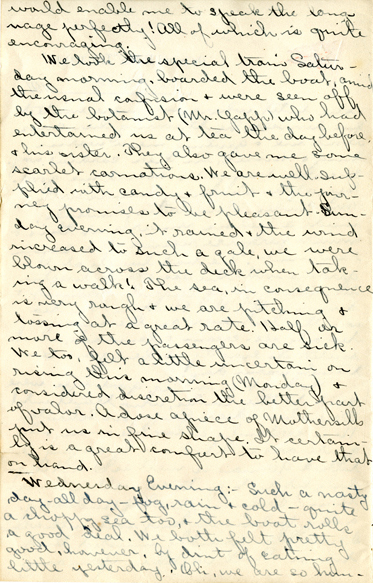 would enable me to speak the lan-
guage perfectly! All of which is quite
encouraging.
We took the special train Satur-
day morning, boarded the boat, amid
the usual confusion & were seen off
by the botanist (Mr. Clapp) who had
entertained us at tea the day before,
& his sister. They also gave me some
scarlet carnations. We are well sup-
plied with candy & fruit & the jour-
ney promises to be pleasant. Sun-
day evening it rained & the wind
increased to such a gale, we were
blown across the deck when tak-
ing a walk! The sea, in consequence
is very rough & we are pitching &
tossing at a great rate! Half or
more of the passengers are sick.
We too, felt a little uncertain on
rising this morning (Monday) &
considered discretion the better part
of valor. A dose apiece of Mothersills
put us in fine shape. It certain-
ly is a great comfort to have that
on hand.
Wednesday Evening:- Such a nasty
day-all day-fog, rain & cold-quite
a choppy sea too, & the boat rolls
a good deal. We both felt pretty
good, however, by dint of eating
little yesterday. Oh, we are so hun-